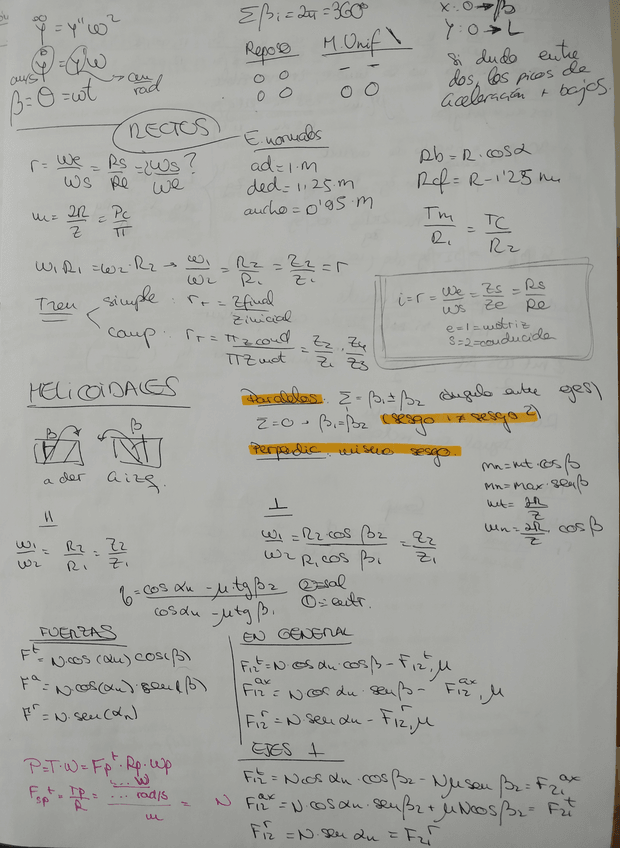 ÿ = y'' ω²
ẏ = y' ω
aus → cm/rad
β = θ = ωt
Σβi = 2π = 360º
Reposo M. Unif
0 0 – –
0 0 0 0
x: 0 → β
y: 0 → L
si dudo entre
dos, los picos de
aceleración + bajos.
RECTOS
r = ωe/ωs = Rs/Re = ¿ωs/ωe?
m = 2R/Z = Pc/π
E. normales
ad = 1·m
ded = 1,25·m
ancho = 0'95·m
Rb = R·cosα
Rcf = R-1'25 m
Tm/R1 = TC/R2
ω1 R1 = ω2·R2 → ω1/ω2 = R2/R1 = Z2/Z1 = r
Tren
simple: rT = Zfinal/Zinicial
comp: rT = πZcond/πZmot = Z2/Z1 · Z4/Z3
i = r = ωe/ωs = Zs/Ze = Rs/Re
e=1=motriz
s=2=conducida
HELICOIDALES
β β
a der a izq.
Paralelos: Σ = β1 ± β2 (ángulo entre ejes)
Σ=0 → β1=β2 (sesgo 1 ≠ sesgo 2)
Perpedic. mismo sesgo.
mn = mt·cosβ
mn = max·senβ
mt = 2R/Z
mn = 2R/Z cosβ
||
ω1/ω2 = R2/R1 = Z2/Z1
⊥
ω1/ω2 = R2 cos β2/R1 cos β1 = Z2/Z1
η = cos αn - μ tg β2/cos αn - μ tg β1
② = sal
① = entr.
FUERZAS
F^t = N·cos(αn) cos(β)
F^a = N·cos(αn)·sen(β)
F^r = N·sen(αn)
EN GENERAL
F12^t = N·cos αn·cosβ - F12^t, μ
F12^ax = N cos αn·senβ - F12^ax, μ
F12^r = N·sen αn - F12^r, μ
EJES ⊥
F12^t = N cos αn·cos β2 - Nμ sen β2 = F21^ax
F12^ax = N·cos αn·sen β2 + μN cos β2 = F21^t
F12^r = N·sen αn = F21^r
P = T·ω = Fp^t·Rp·ωp
Fsp^t = Tp/R = ... W/... rad/s / m = N